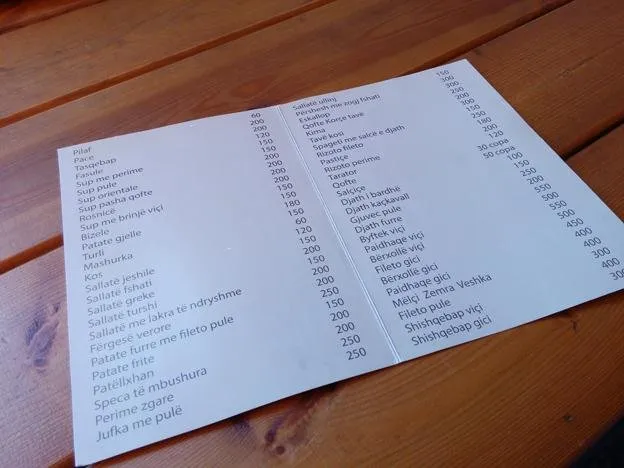 Pilaf
Pace
Tasqebap
Fasule
Sup me perime
Sup pule
Sup orientale
Sup pasha qofte
Rosnicë
Sup me brinjë viçi
Bizele
Patate gjelle
Turli
Mashurka
Kos
Sallatë jeshile
Sallatë fshati
Sallatë greke
Sallatë turshi
Sallatë me lakra të ndryshme
Fërgesë verore
Patate furre me fileto pule
Patate frite
Patëllxhan
Speca të mbushura
Perime zgare
Jufka me pulë
60
200
200
120
150
150
200
200
200
150
150
180
150
60
120
150
150
200
200
250
150
200
200
250
250
Sallatë ullinj 150
Përshesh me zogj fshati 300
Eskallop 300
Qofte Korçe tave 250
Kima 200
Tavë kosi 300
Spageti me salcë e djath 150
Rizoto fileto 250
Pastiçe 180
Rizoto perime 200
Tarator 120
Qofte 30 copa
Salçiçe 50 copa
Djath i bardhë 100
Djath kaçkavall 150
Gjuvec pule 250
Djath furre 200
Byftek viçi 550
Paidhaqe viçi 500
Bërxollë viçi 550
Fileto gici 500
Bërxollë gici 450
Paidhaqe gici 400
Mëlçi Zemra Veshka 300
Fileto pule 400
Shishqebap viçi 400
Shishqebap gici 300